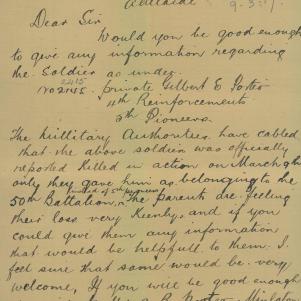 Adelaide 9-3-17
Dear Sir
Would you be good enough
to give any information regarding
the Soldier as under.
2415
No 2145. Private Gilbert E Foster
11th Reinforcements
5th Pioneers.
The Millitary Authorities have cabled
that the above soldier was officially
reported killed in action on March 9th
only they gave him as belonging to the
instead of 5th pioneers
50th Battalion, The parents are feeling
their loss very Keenly, and if you
could give them any information
that would be helpfull to them I
feel sure that same would be very
welcome, If you will be good enough